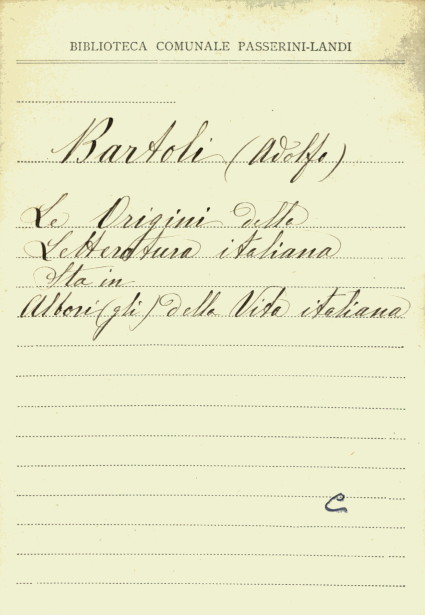 BIBLIOTECA COMUNALE PASSERINI-LANDI
Bartoli (Adolfo)
Le Origini della
Letteratura italiana
Sta in
Albori (gli) della Vita italiana
C